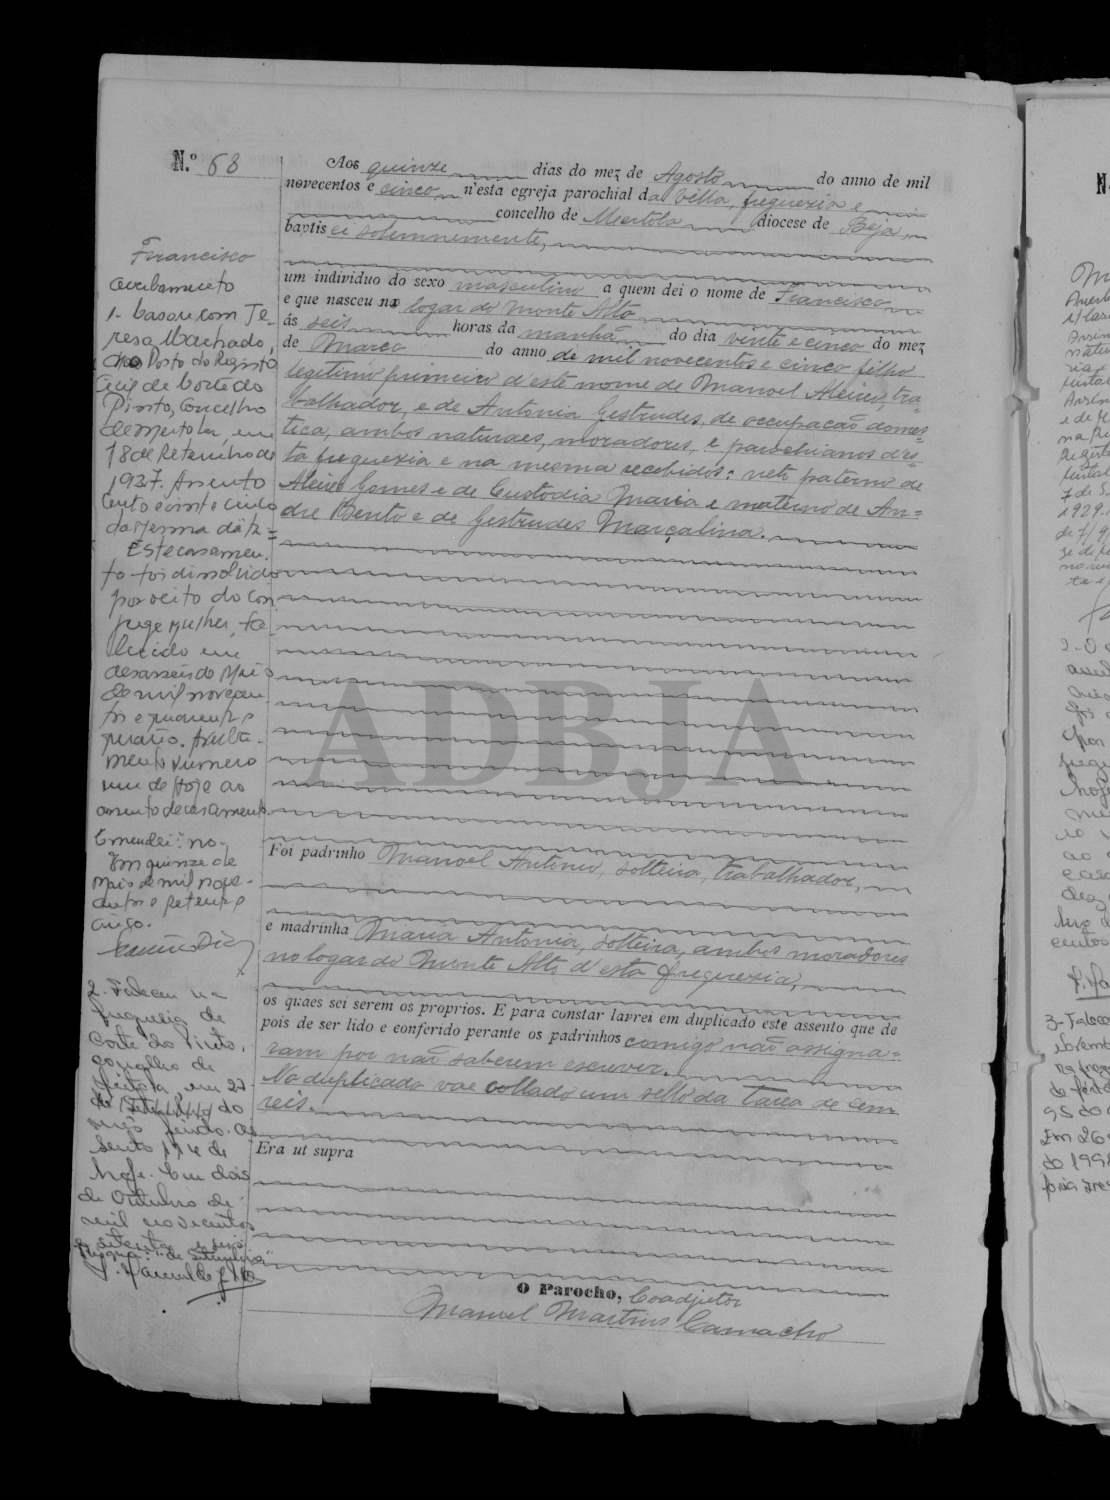 N.º 68
Aos quinze dias do mez de Agosto do anno de mil
novecentos e cinco n'esta egreja parochial da villa, freguezia e
concelho de Mertola diocese de Beja,
baptisei solemnemente,
um individuo do sexo masculino a quem dei o nome de Francisco
e que nasceu no logar do Monte Alto
ás seis horas da manhã do dia vinte e cinco do mez
de Março do anno de mil novecentos e cinco filho
legitimo primeiro d'este nome de Manoel Aleixo, tra-
balhador, e de Antonia Gestrudes, de occupação domes-
tica, ambos naturaes, moradores, e parochianos d'es-
ta freguezia e na mesma recebidos: neto paterno de
Aleixo Gomes e de Custodia Maria e materno de An-
dre Bento e de Gestrudes Marçalina.
Foi padrinho Manoel Antonio, solteiro, trabalhador,
e madrinha Maria Antonia, solteira, ambos moradores
no logar do Monte Alto d'esta freguezia,
os quaes sei serem os proprios. E para constar lavrei em duplicado este assento que de
pois de ser lido e conferido perante os padrinhos comigo não assigna-
ram por não saberem escrever.
No duplicado vae collado um sello da taxa de cem
reis.
Era ut supra
O Parocho, Coadjutor
Manuel Martins Camacho
Francisco
averbamento
1- Casou com Te-
resa Machado,
no Posto do Registo
Civil de Corte do
Pinto, Concelho
de Mertola, em
18 de Setembro de
1937. Assento
cento e vinte e cinco
da mesma data =
Este casamen-
to foi dissolvido
por óbito do con
juge mulher, fa-
lecido em
dezasseis de Maio
de mil novecen-
tos e quarenta e
quatro. Averba-
mento número
um de hoje ao
assento de casamento.
Emendei: "no".
Em quinze de
Maio de mil nove-
centos e setenta e
cinco.
2. Faleceu na
freguesia de
Corte do Pinto,
concelho de
Mertola, em 27
de Setembro do
ano findo. As
sento 114 de
hoje. Em dois
de Outubro de
mil novecentos
e setenta e seis
ADBJA